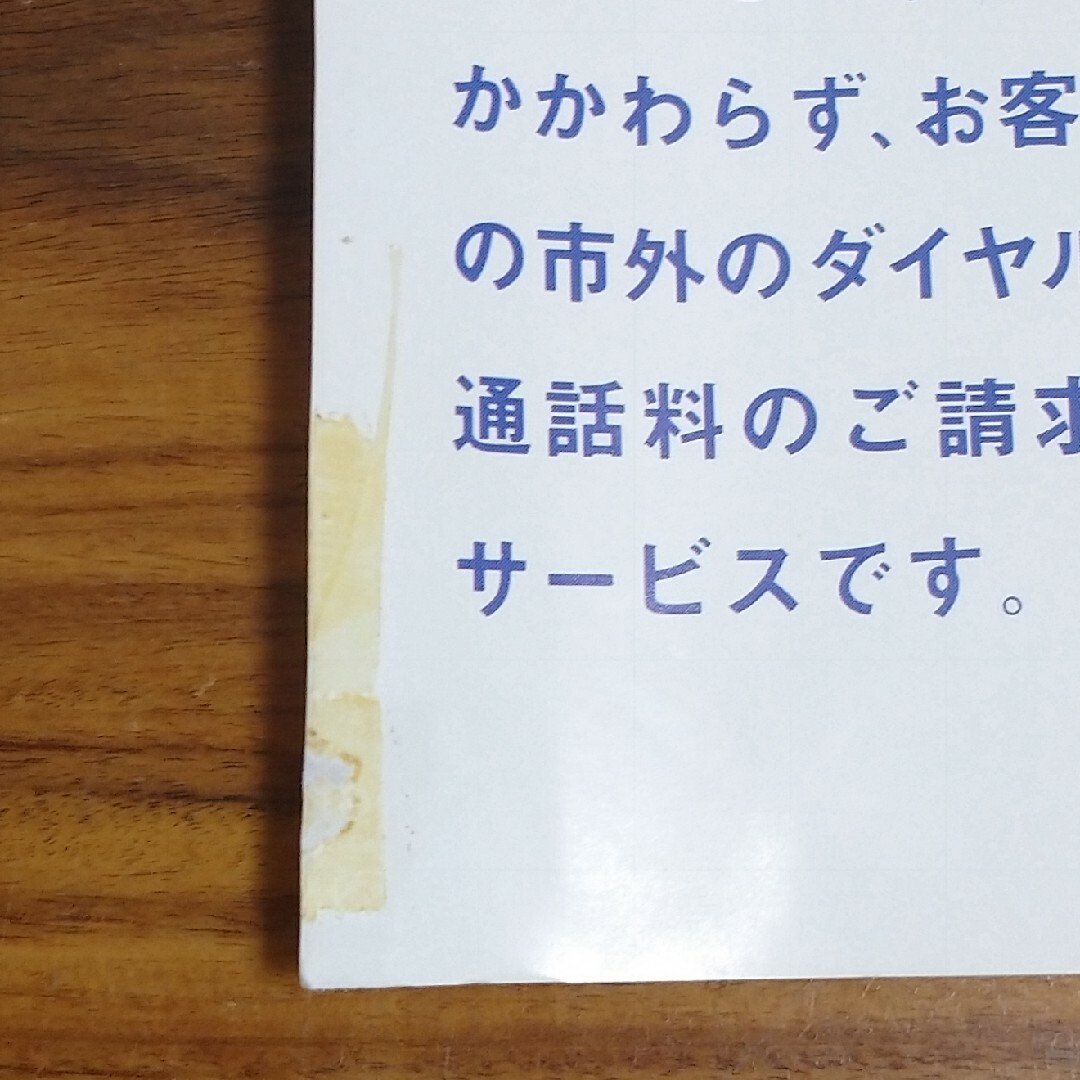 かかわらず、お客
の市外のダイヤル
通話料のご請求
サービスです。